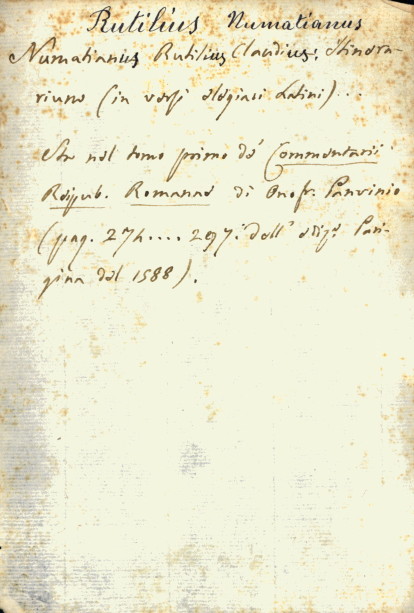 Rutilius Numatianus
Numatianus Rutilius Claudius; Itinera-
rium (in versi elegiaci Latini)...
Sta nel tomo primo de' Commentarii
Reipub. Romanae di Onofr. Panvinio
(pag. 274.... 297. dell' ediz.e Pari-
gina del 1588).